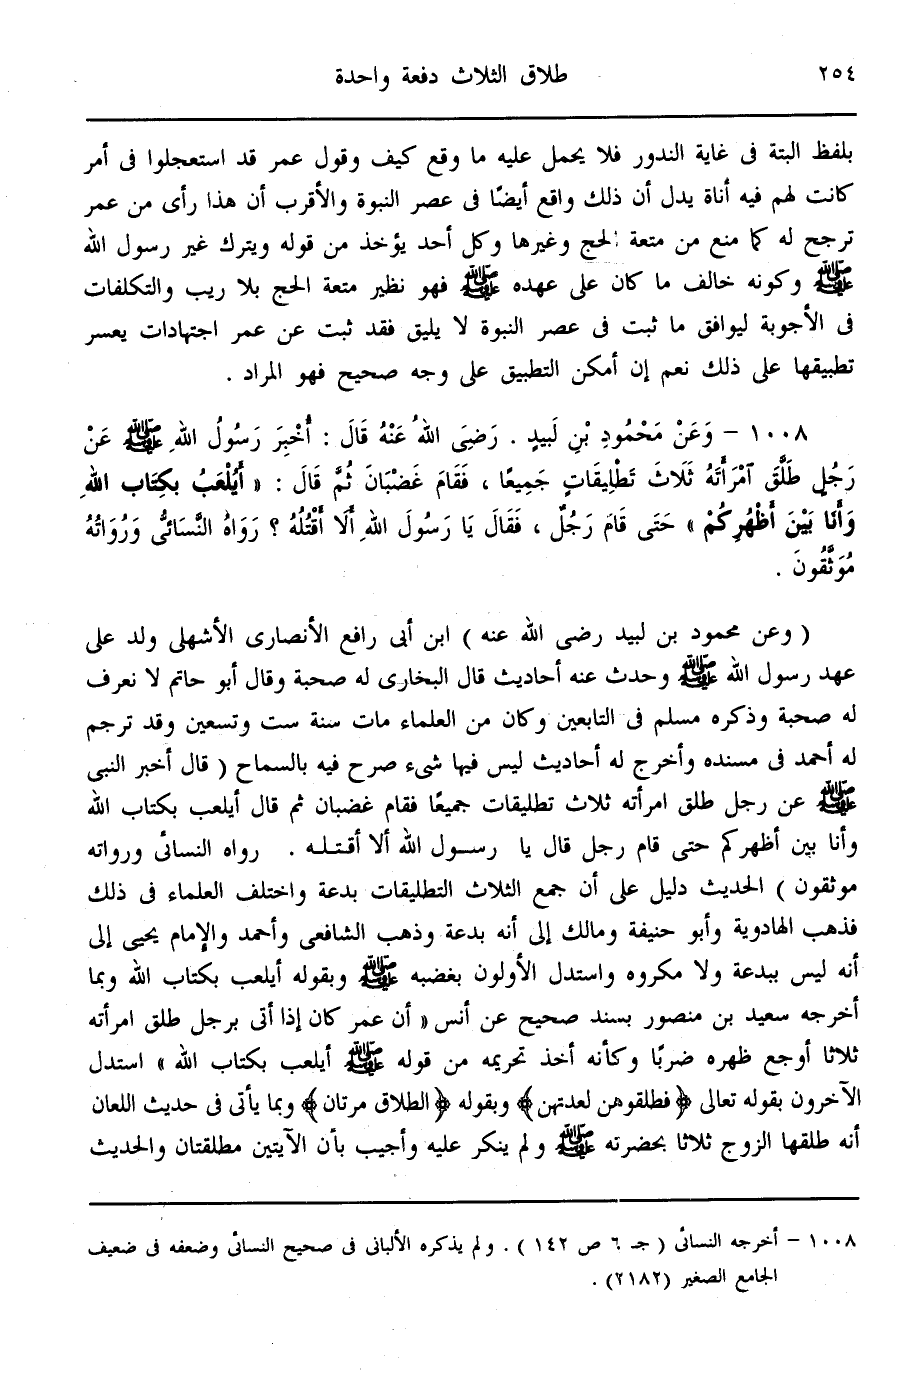 ٢٥٤ طلاق الثلاث دفعة واحدة
بلفظ البتة فى غاية الندور فلا يحمل عليه ما وقع كيف وقول عمر قد استعجلوا فى أمر
كانت لهم فيه أناة يدل أن ذلك واقع أيضًا فى عصر النبوة والأقرب أن هذا رأى من عمر
ترجح له كما منع من متعة الحج وغيرها وكل أحد يؤخذ من قوله ويترك غير رسول الله
ﷺ وكونه خالف ما كان على عهده ﷺ فهو نظير متعة الحج بلا ريب والتكلفات
فى الأجوبة ليوافق ما ثبت فى عصر النبوة لا يليق فقد ثبت عن عمر اجتهادات يعسر
تطبيقها على ذلك نعم إن أمكن التطبيق على وجه صحيح فهو المراد .
١٠٠٨ – وَعَنْ مَحْمُودِ بْنِ لَبِيدٍ . رَضِىَ اللهُ عَنْهُ قَالَ : أُخْبِرَ رَسُولُ اللهِ ﷺ عَنْ
رَجُلٍ طَلَّقَ آمْرَأَتَهُ ثَلَاثَ تَطْلِيقَاتٍ جَمِيعًا ، فَقَامَ غَضْبَانَ ثُمَّ قَالَ : « أَيُلْعَبُ بكِتَابِ اللهِ
وَأَنَا بَيْنَ أَظْهُرِكُمْ » حَتَى قَامَ رَجُلٌ ، فَقَالَ يَا رَسُولَ اللهِ أَلَا أَقْتُلُهُ ؟ رَوَاهُ النَّسَائىُّ وَرُوَاتُهُ
مُوَثَّقُونَ .
( وعن محمود بن لبيد رضى الله عنه ) ابن أبى رافع الأنصارى الأشهلى ولد على
عهد رسول الله ﷺ وحدث عنه أحاديث قال البخارى له صحبة وقال أبو حاتم لا نعرف
له صحبة وذكره مسلم فى التابعين وكان من العلماء مات سنة ست وتسعين وقد ترجم
له أحمد فى مسنده وأخرج له أحاديث ليس فيها شىء صرح فيه بالسماح ( قال أخبر النبى
ﷺ عن رجل طلق امرأته ثلاث تطليقات جميعًا فقام غضبان ثم قال أيلعب بكتاب الله
وأنا بين أظهركم حتى قام رجل قال يا رســول الله ألا أقـتـلـه . رواه النسائى ورواته
موثقون ) الحديث دليل على أن جمع الثلاث التطليقات بدعة واختلف العلماء فى ذلك
فذهب الهادوية وأبو حنيفة ومالك إلى أنه بدعة وذهب الشافعى وأحمد والإمام يحيى إلى
أنه ليس ببدعة ولا مكروه واستدل الأولون بغضبه ﷺ وبقوله أيلعب بكتاب الله وبما
أخرجه سعيد بن منصور بسند صحيح عن أنس « أن عمر كان إذا أتى برجل طلق امرأته
ثلاثا أوجع ظهره ضربًا وكأنه أخذ تحريمه من قوله ﷺ أيلعب بكتاب الله » استدل
الآخرون بقوله تعالى ﴿فطلقوهن لعدتهن﴾ وبقوله ﴿الطلاق مرتان﴾ وبما يأتى فى حديث اللعان
أنه طلقها الزوج ثلاثا بحضرته ﷺ ولم ينكر عليه وأجيب بأن الآيتين مطلقتان والحديث
١٠٠٨ – أخرجه النسائى ( جـ ٦ ص ١٤٢ ) . ولم يذكره الألبانى فى صحيح النسائى وضعفه فى ضعيف
الجامع الصغير (٢١٨٢) .